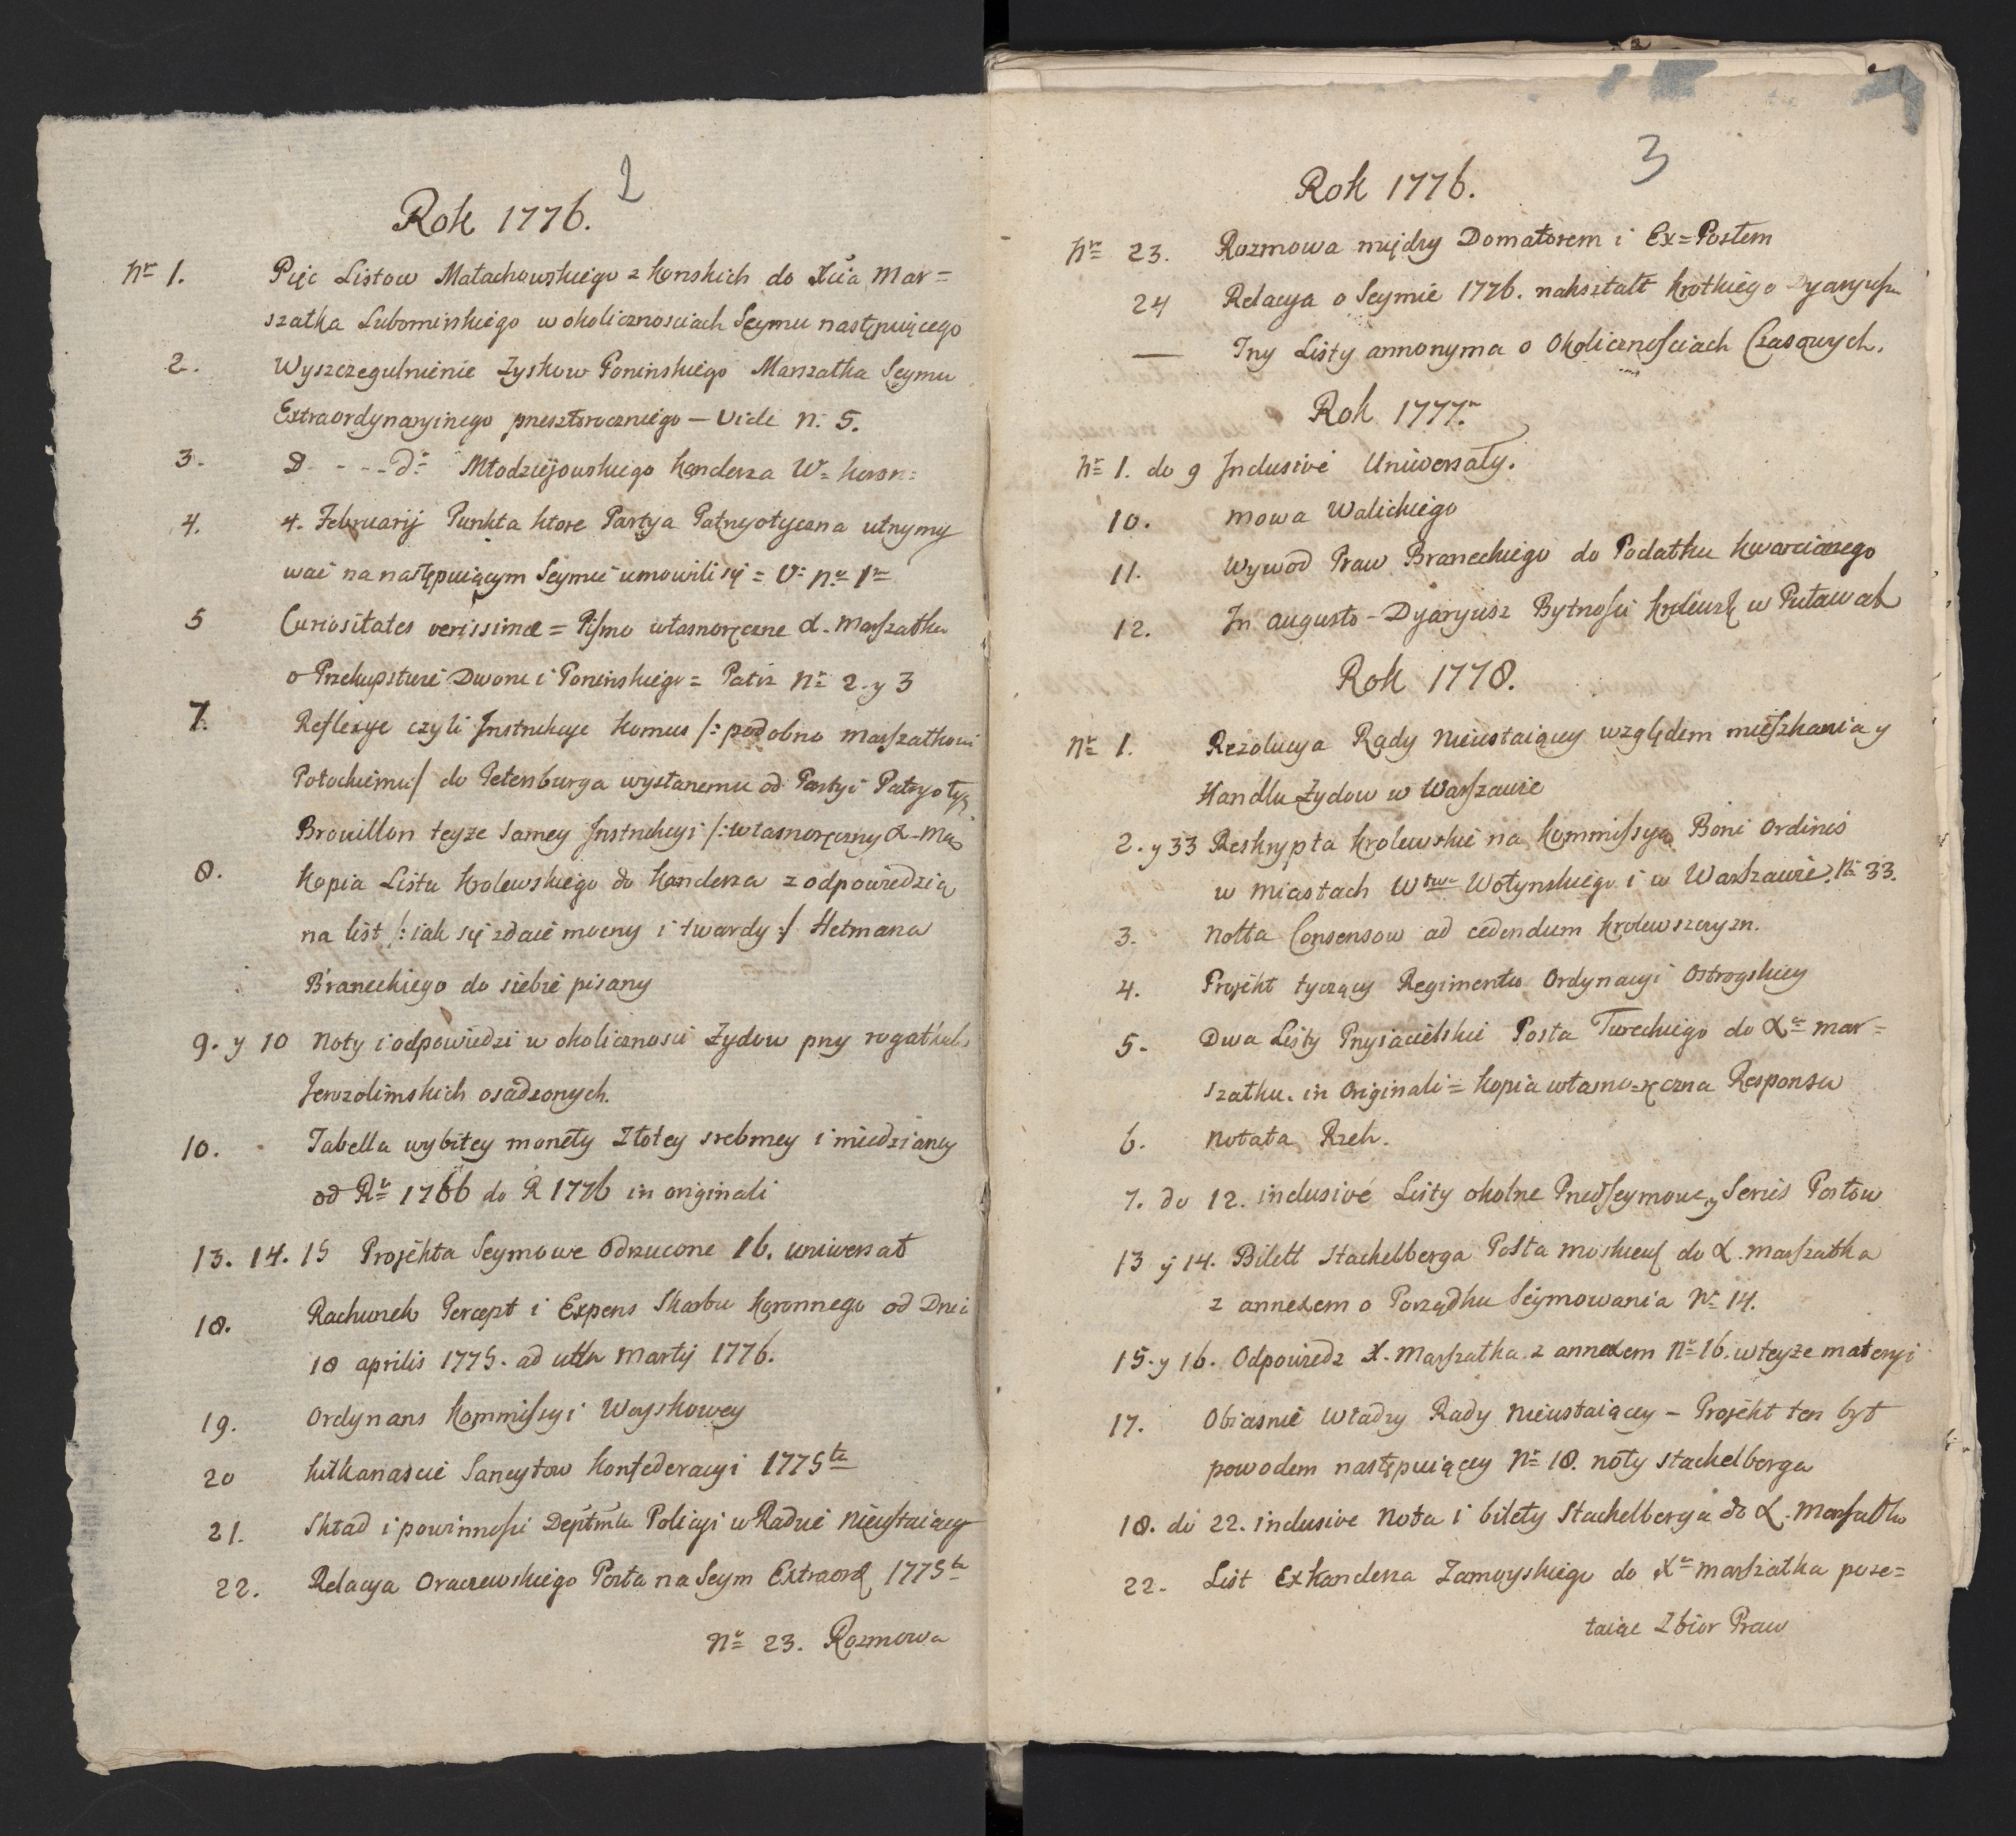 2
Rok 1776.
Nr 1. Pięc Listow Małachowskiego z Konskich do Xcia Mar=
szałka Lubomirskiego w okolicznosciach Seymu następuiącego
2. Wyszczegulnienie Zyskow Ponińskiego Marszałka Seymu
Extraordynaryinego przeszłorocznego — Vide N. 5.
3. D - - - do Młodziejowskiego Kanclerza W= koron=
4. 4. Februarij Punkta ktore Partya Patryotyczna utrzymy
wać na następuiącym Seymie umowili się = V: Nro 1mo
5 Curiositates verissimæ = Pismo własnoręczne X. Marszałka
o Przekupstwie Dworu i Ponińskiego = Patrz Nr 2. y 3
7. Reflexye czyli Instrukcye komus /: podobno marszałkowi
Potockiemu/ do Petersburga wysłanemu od Partyi Patryoty
Brouillon teyze samey Instrukcyi /: własnoręczny X. Ma
8. Kopia Listu Krolewskiego do Kanclerza z odpowiedzią
na list /: iak się zdaie mocny i twardy :/ Hetmana
Braneckiego do siebie pisany
9. y 10 Noty i odpowiedzi w okolicznosci Zydow przy rogatkach
Jerozolimskich osadzonych.
10. Tabella wybitey monety Złotey srebrney i miedzianey
od Ru 1766 do R 1776 in originali
13. 14. 15 Projekta Seymowe odrzucone 16. uniwersał
18. Rachunek Percept i Expens Skarbu Koronnego od Dnia
18 aprilis 1775. ad ult Martij 1776.
19. Ordynans Kommissyi Woyskowey
20 kilkanascie Sancytow Konfederacyi 1775ta
21. Skład i powinnosci Deptmtu Policyi w Radzie Nieustaiącey
22. Relacya Oraczewskiego Posła na Seym Extraord 1775ta
Nr 23. Rozmowa
3
Rok 1776.
Nr 23. Rozmowa między Domatorem i Ex=Posłem
24 Relacya o Seymie 1776. nakształt krotkiego Dyaryusza
— Trzy Listy annonyma o Okolicznosciach Czasowych.
Rok 1777.
Nr 1. do 9 Inclusivé Uniwersały.
10. Mowa Walickiego
11. Wywod Praw Braneckiego do Podatku kwarcianego
12. In augusto - Dyaryusz Bytnosci Krolewsk w Puławach
Rok 1778.
Nr 1. Rezolucya Rady Nieustaiącey względem mieszkania y
Handlu Zydow w Warszawie
2. y 33 Reskrypta Krolewskie na Kommissyą Boni Ordinis
w miastach Wtwa Wołynskiego i w Warszawie. Nr 33.
3. Notta Consensow ad cedendum krolewszczyzn.
4. Projekt tyczący Regimentu Ordynacyi Ostrogskiey
5. Dwa Listy Przyiacielskie Posła Tureckiego do Xcia mar=
szałku. in Originali = kopia własno=ręczna Responsu
6. Notata Rzek.
7. do 12. inclusivé Listy okolne Przedseymowe y Series Posłow
13 y 14. Bilett Stackelberga Posła moskiews do X. marszałka
z annexem o Porządku Seymowania Nr 14.
15. y 16. Odpowiedz X. Marszałka z annexem Nr 16. w teyze materyi
17. Obiasnie Władzy Rady Nieustaiącey — Projekt ten był
powodem następuiącey Nr 18. noty Stackelberga
18. do 22. inclusive Nota i bilety Stackelberga do X. Marszałka
22. List ExKanclerza Zamoyskiego do Xcia marszałka posy=
łaiąc Zbior Praw